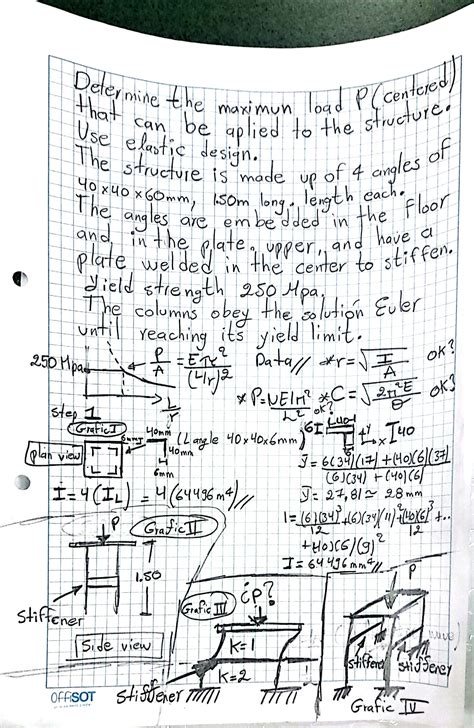 Determine the maximun load P (centered)
that can be aplied to the structure.
Use elastic design.
The structure is made up of 4 angles of
40x40x60mm, 1.50m long. length each.
The angles are embedded in the floor
and, in the plate, upper, and have a
plate welded in the center to stiffen.
yield strength 250 Mpa.
The columns obey the solution Euler
until reaching its yield limit.
250 Mpa
P/A = Eπ²/(L/r)²
Data// *r=√(I/A) OK?
L/r
OK?
OK?
Step 1
Grafic I
Plan view
6mm
40mm
40mm
6mm
(L angle 40x40x6mm)
6I
L40
y
x
I40
ȳ=6(34)(17)+(40)(6)(37)
(6)(34)+(40)(6)
ȳ=27,81≅28mm
I=4(I_L)=4(64496m⁴)//
I=(6)(34)³/12+(6)(34)(11)²+(40)(6)³/12+..
+(40)(6)(9)²
I=64496mm⁴//
P
Grafic II
1.50
Stiffener
Side view
Grafic III
¿P?
K=1
K=2
Stiffener
P
stiffener
stiffener
Grafic IV
OFFISOT